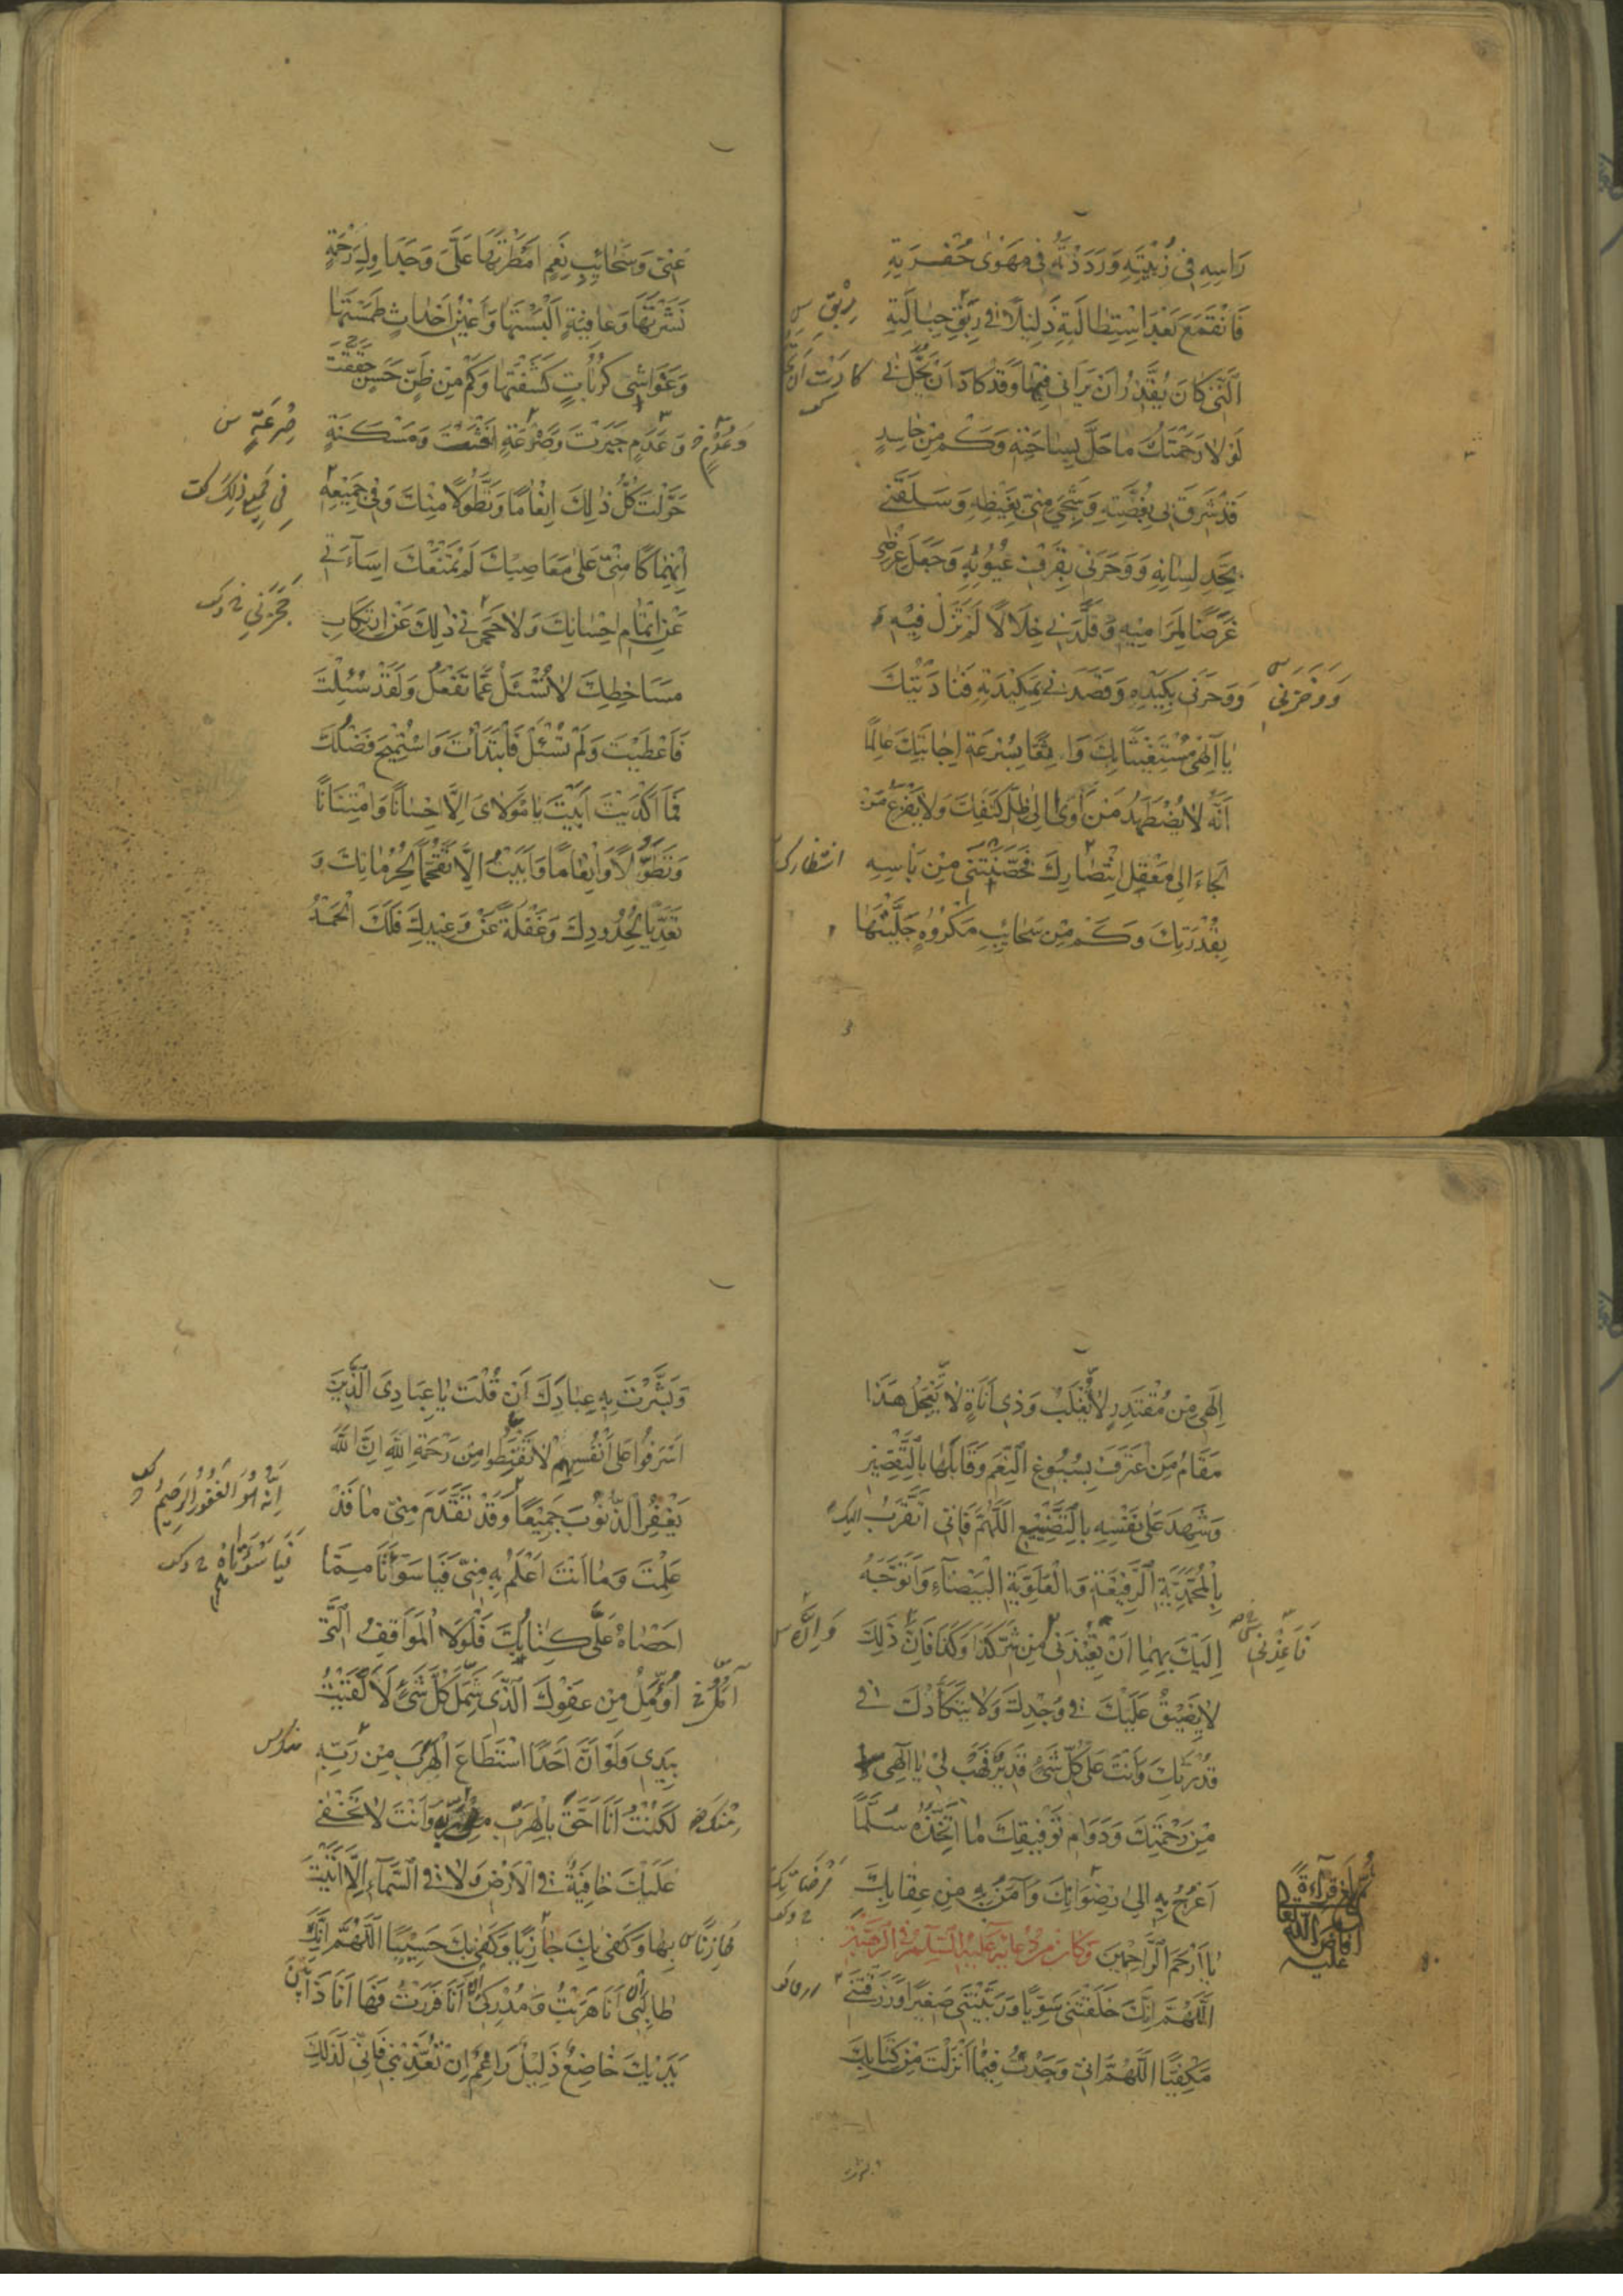 رَاسِهِ فِى زُبْيَتِهِ وَرَدَدْتَهُ فِى مَهْوٰى حُفْرَتِهِ
فَانْقَمَعَ بَعْدَ اسْتِطٰالَتِهِ ذَلِيلًا فى رِبَقِ حِبٰالَتِهِ
رِبْقِ س
الَّتِى كَانَ يُقَدِّرُ اَنْ يَرَانِى فِيْهٰا وَقَدْ كَادَ اَنْ يَحُلَّ بى
كادَتْ اَنْ
لَوْلَا رَحْمَتُكَ مٰا حَلَّ بِسٰاحَتِهِ وَكَمْ مِنْ حٰاسِدٍ
قَدْ شَرِقَ بِى بِغُصَّتِهِ وَشَجِىَ مِنّى بِغَيْظِهِ وَسَلَقَنِى
بِحَدِّ لِسٰانِهِ وَوَحَرَنِى بِقَرْفِ عُيُوبِهِ وَجَعَلَ عِرْضِى
غَرَضًا لِمَرَامِيهِ وَقَلَّدَنِى خِلَالًا لَمْ تَزَلْ فِيْهِ وَ
وَوَحَرَنِى بِكَيْدِهِ وَقَصَدَنِى بِمَكِيْدَتِهِ فَنٰادَيْتُكَ
وَوَخَزَنِى س
يٰا اِلٰهِى مُسْتَغِيْثًا بِكَ وَاثِقًا بِسُرْعَةِ اِجٰابَتِكَ عٰالِمًا
اَنَّهُ لٰا يُضْطَهَدُ مَنْ اَوٰى اِلٰى ظِلِّ كَنَفِكَ وَلٰا يَفْزَعُ مَنْ
لَجَاءَ اِلٰى مَعْقِلِ انْتِصٰارِكَ فَحَصَّنْتَنِى مِنْ بَاْسِهِ
انتظارك
بِقُدْرَتِكَ وَكَمْ مِنْ سَحٰائِبِ مَكْرُوهٍ جَلَّيْتَهٰا
عَنِّىْ وَسَحٰائِبِ نِعَمٍ اَمْطَرْتَهَا عَلَىَّ وَجَدٰاوِلِ رَحْمَةٍ
نَشَرْتَهَا وَعٰافِيَةٍ اَلْبَسْتَهٰا وَاَعْيُنِ اَحْدٰاثٍ طَمَسْتَهٰا
وَغَوَاشِى كُرُبٰاتٍ كَشَفْتَهٰا وَكَمْ مِنْ ظَنٍّ حَسَنٍ حَقَّقْتَ
وَعَدَمٍ جَبَرْتَ وَصَرْعَةٍ اَنْعَشْتَ وَمَسْكَنَةٍ
وَعُدْمٍ
صِرْعَةٍ س
حَوَّلْتَ كُلُّ ذٰلِكَ اِنْعٰامًا وَتَطَوُّلًا مِنْكَ وَفِى جَمِيْعِهِ
فى جَمِيعِ ذلِكَ
اِنْهِمٰاكًا مِنّى عَلٰى مَعٰاصِيْكَ لَمْ تَمْنَعْكَ اِسَآءَتِى
عَنْ اِتْمٰامِ اِحْسٰانِكَ وَلٰا حَجَرَنِى ذٰلِكَ عَنِ ارْتِكَابِ
حَجَزَنِي
مَسَاخِطِكَ لَا تُسْئَلُ عَمَّا تَفْعَلُ وَلَقَدْ سُئِلْتَ
فَاَعْطَيْتَ وَلَمْ تُسْئَلْ فَابْتَدَأْتَ وَاسْتُمِيْحَ فَضْلُكَ
فَمَا اَكْدَيْتَ اَبَيْتَ يَا مَوْلَاىَ اِلَّا اِحْسٰانًا وَامْتِنَانًا
وَتَطَوُّلًا وَاِنْعٰامًا وَاَبَيْتُ اِلَّا تَقَحُّمًا لِحُرُمٰاتِكَ وَ
تَعَدِّيًا لِحُدُودِكَ وَغَفْلَةً عَنْ وَعِيدِكَ فَلَكَ الْحَمْدُ
اِلٰهِى مِنْ مُقْتَدِرٍ لٰا يُغْلَبُ وَذِى اَنَاةٍ لٰا يَعْجَلُ هٰذَا
مَقَامُ مَنِ اعْتَرَفَ بِسُبُوغِ النِّعَمِ وَقَابَلَهٰا بِالتَّقْصِيْرِ
وَشَهِدَ عَلٰى نَفْسِهِ بِالتَّضْيِيْعِ اَللّٰهُمَّ فَاِنِّى اَتَقَرَّبُ اليك
بِالْمُحَمَّدِيَّةِ الرَّفِيْعَةِ وَالْعَلَوِيَّةِ الْبَيْضَآءِ وَاَتَوَجَّهُ
اِلَيْكَ بِهِمٰا اَنْ تُعِيْذَنِى مِنْ شَرِّ كَذَا وَكَذَا فَاِنَّ ذٰلِكَ
فَاَعِذْنِى س
وَاِنَّ س
لٰا يَضِيْقُ عَلَيْكَ فى وُجْدِكَ وَلٰا يَتَكَأَّدُكَ فى
قُدْرَتِكَ وَاَنْتَ عَلٰى كُلِّ شَىْءٍ قَدِيْرٌ فَهَبْ لِىْ يٰا اِلٰهِى
مِنْ رَحْمَتِكَ وَدَوٰامِ تَوْفِيْقِكَ مٰا اَتَّخِذُهُ سُلَّمًا
اَعْرُجُ بِهِ اِلٰى رِضْوٰانِكَ وَاٰمَنُ بِهِ مِنْ عِقٰابِكَ
مَرْضَاتِكَ
يٰا اَرْحَمَ الرَّاحِمِيْنَ وَكَانَ مِنْ دُعَائِهِ عَلَيْهِ السَّلَامُ فِى الرَّهْبَةِ
بلغ قراءة
اَللّٰهُمَّ اِنَّكَ خَلَقْتَنِى سَوِيًّا وَرَبَّيْتَنِى صَغِيْرًا وَرَزَقْتَنِى
مَكْفِيًّا اَللّٰهُمَّ اِنِّى وَجَدْتُ فِيْمٰا اَنْزَلْتَ مِنْ كِتَابِكَ
وَبَشَّرْتَ بِهِ عِبٰادَكَ اَنْ قُلْتَ يٰا عِبَادِىَ الَّذِيْنَ
اَسْرَفُوا عَلٰى اَنْفُسِهِمْ لٰا تَقْنَطُوا مِنْ رَحْمَةِ اللّٰهِ اِنَّ اللّٰهَ
اِنَّهُ هُوَ الْغَفُورُ الرَّحِيمُ
يَغْفِرُ الذُّنُوْبَ جَمِيْعًا وَقَدْ تَقَدَّمَ مِنّى مٰا قَدْ
عَلِمْتَ وَمٰا اَنْتَ اَعْلَمُ بِهِ مِنّى فَيَا سَوْاَتَا مِمَّا
فَيَا سَوْاَتَاهُ
اَحْصٰاهُ عَلَىَّ كِتٰابُكَ فَلَوْلَا الْمَوَاقِفُ الَّتى
اُؤَمِّلُ مِنْ عَفْوِكَ الَّذِى شَمِلَ كُلَّ شَىْءٍ لَاَلْقَيْتُ
بِيَدِى وَلَوْ اَنَّ اَحَدًا اسْتَطَاعَ الْهَرَبَ مِنْ رَبِّهِ
لَكُنْتُ اَنَا اَحَقَّ بِالْهَرَبِ وَاَنْتَ لٰا تَخْفٰى
مِنْكَ
عَلَيْكَ خٰافِيَةٌ فى الْاَرْضِ وَلٰا فى السَّمَآءِ اِلَّا اَتَيْتَ
بِهٰا وَكَفٰى بِكَ جٰازِيًا وَكَفٰى بِكَ حَسِيْبًا اَللّٰهُمَّ اِنَّكَ
طٰالِبِى اِنْ اَنَا هَرَبْتُ وَمُدْرِكِى اِنْ اَنَا فَرَرْتُ فَهَا اَنَا ذَا بَيْنَ
يَدَيْكَ خٰاضِعٌ ذَلِيْلٌ رَاغِمٌ اِنْ تُعَذِّبْنِى فَاِنِّى لِذٰلِكَ